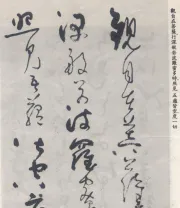 觀自在菩薩行深般若波羅蜜多時照見五蘊皆空度一切
觀自在菩薩行
深般若波羅蜜多
照見五蘊皆空